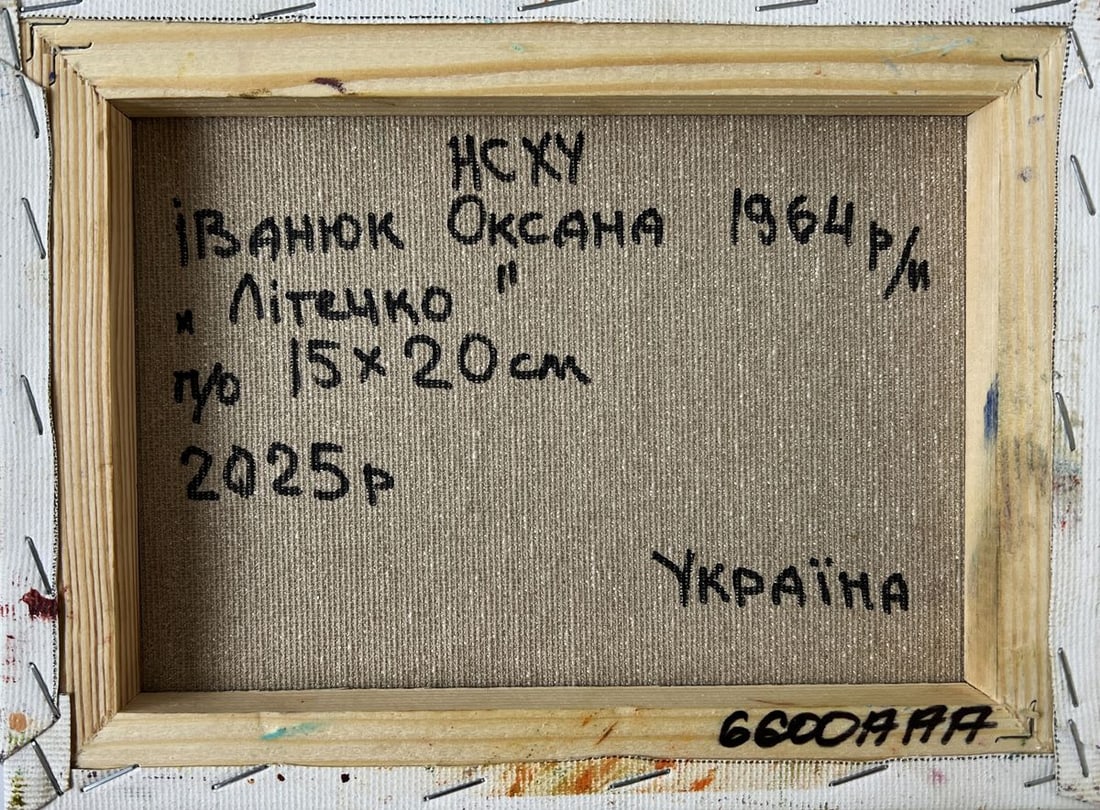 НСХУ
Іванюк Оксана 1964 р/н
„Літечко"
п/о 15х20см
2025р
Україна
6600AAA